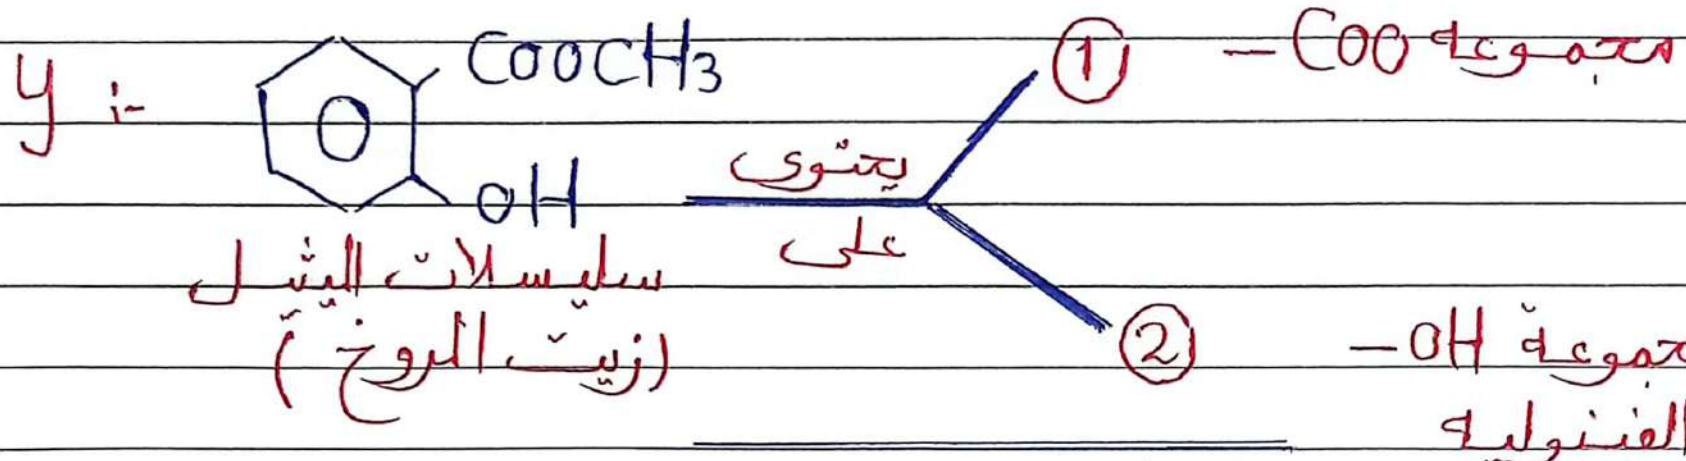 y :-
COOCH3
OH
سليسلات الميثيل
(زيت المروخ)
يحتوى
على
① مجموعة COO –
② مجموعة OH –
الفينولية